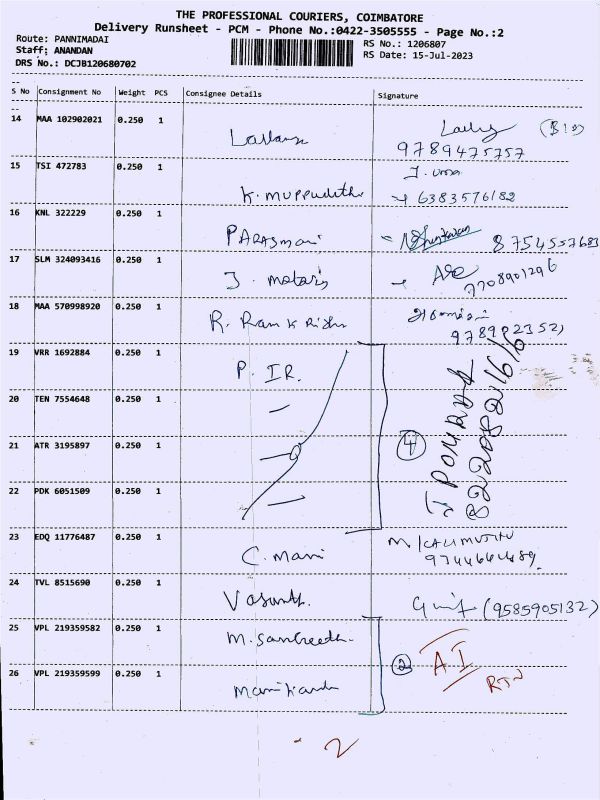 THE PROFESSIONAL COURIERS, COIMBATORE
Delivery Runsheet - PCM - Phone No.:0422-3505555 - Page No.:2
Route: PANNIMADAI
RS No.: 1206807
Staff: ANANDAN
RS Date: 15-Jul-2023
DRS No.: DCJB120680702
S No Consignment No Weight PCS Consignee Details Signature
14 MAA 102902021 0.250 1
9789475757
15 TSI 472783 0.250 1 K. Muppudathi J. uma
6383576182
16 KNL 322229 0.250 1 PARASMani 8754557683
17 SLM 324093416 0.250 1 J.
7708901296
18 MAA 570998920 0.250 1 R. Ram K Rish
19 VRR 1692884 0.250 1 P. IR.
20 TEN 7554648 0.250 1 —
21 ATR 3195897 0.250 1 —
22 PDK 6051509 0.250 1 —
4
8220821616
23 EDQ 11776487 0.250 1 C. Mani M/KALIMUTHU
24 TVL 8515690 0.250 1 Vasanth. (9585905132)
25 VPL 219359582 0.250 1 M. Sangeetha
2 AI RTN
26 VPL 219359599 0.250 1 Manikanda
2